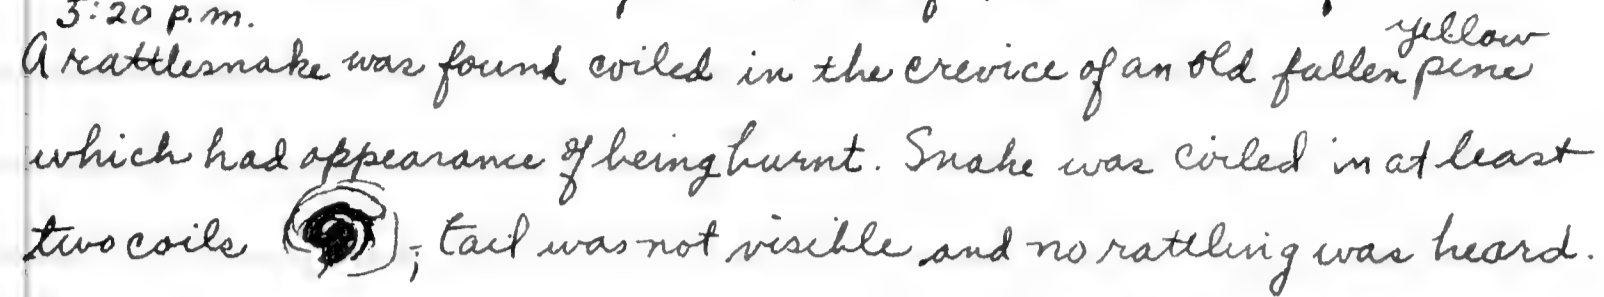 5:20 p.m.
A rattlesnake was found coiled in the crevice of an old fallen yellow pine
which had appearance of being burnt. Snake was coiled in at least
two coils ; tail was not visible and no rattling was heard.